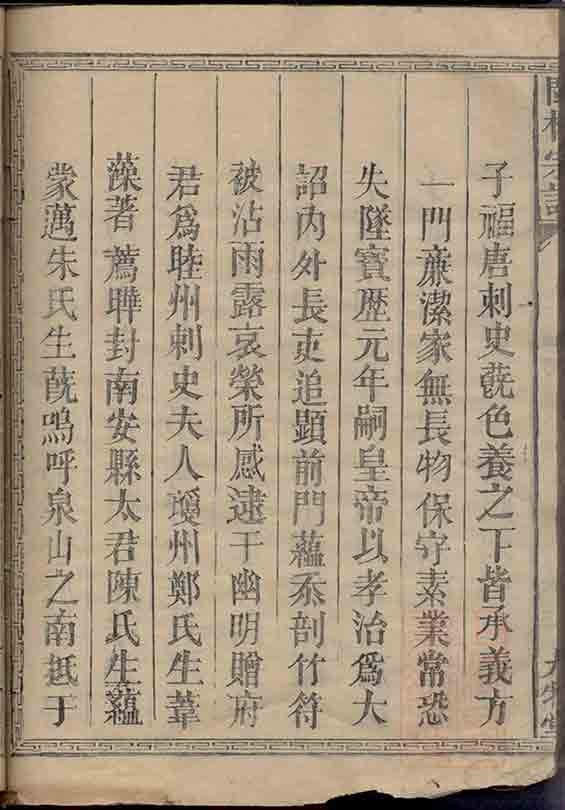 子福唐刺史蕘色養之下皆承義方
一門亷潔家無長物保守素業常恐
失墜寳歴元年嗣皇帝以孝治爲大
詔内外長吏追顯前門蘊忝剖竹符
被沾雨露哀榮所感逮于幽明贈府
君爲睦州刺史夫人瓊州鄭氏生葦
藻著薦曄封南安縣太君陳氏生蘊
蒙邁朱氏生蕘嗚呼泉山之南抵于